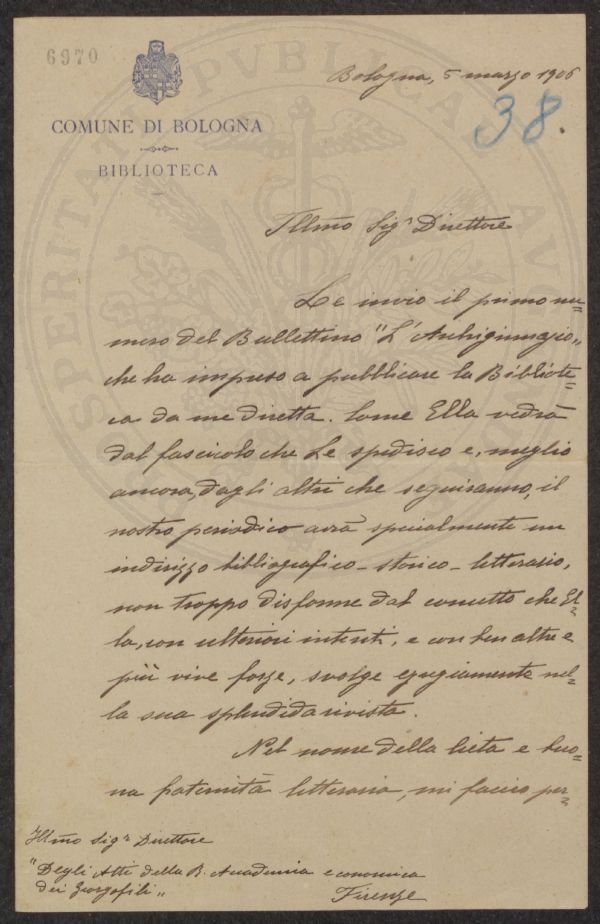 6970
Bologna, 5 marzo 1906
38.
COMUNE DI BOLOGNA
BIBLIOTECA
Illmo Sigr Direttore
Le invio il primo nu=
mero del Bullettino "L'Archiginnasio„
che ha impreso a pubblicare la Bibliote=
ca da me diretta. Come Ella vedrà
dal fascicolo che Le spedisco e, meglio
ancora, dagli altri che seguiranno, il
nostro periodico avrà specialmente un
indirizzo bibliografico-storico-letterario,
non troppo disforme dal concetto che El=
la, con ulteriori intenti, e con ben altre e
più vive forze, svolge egregiamente nel=
la sua splendida rivista.
Nel nome della lieta e buo=
na fraternità letteraria, mi faccio per=
Illmo Sigr Direttore
"Degli Atti della R. Accademia economica
dei Georgofili„
Firenze